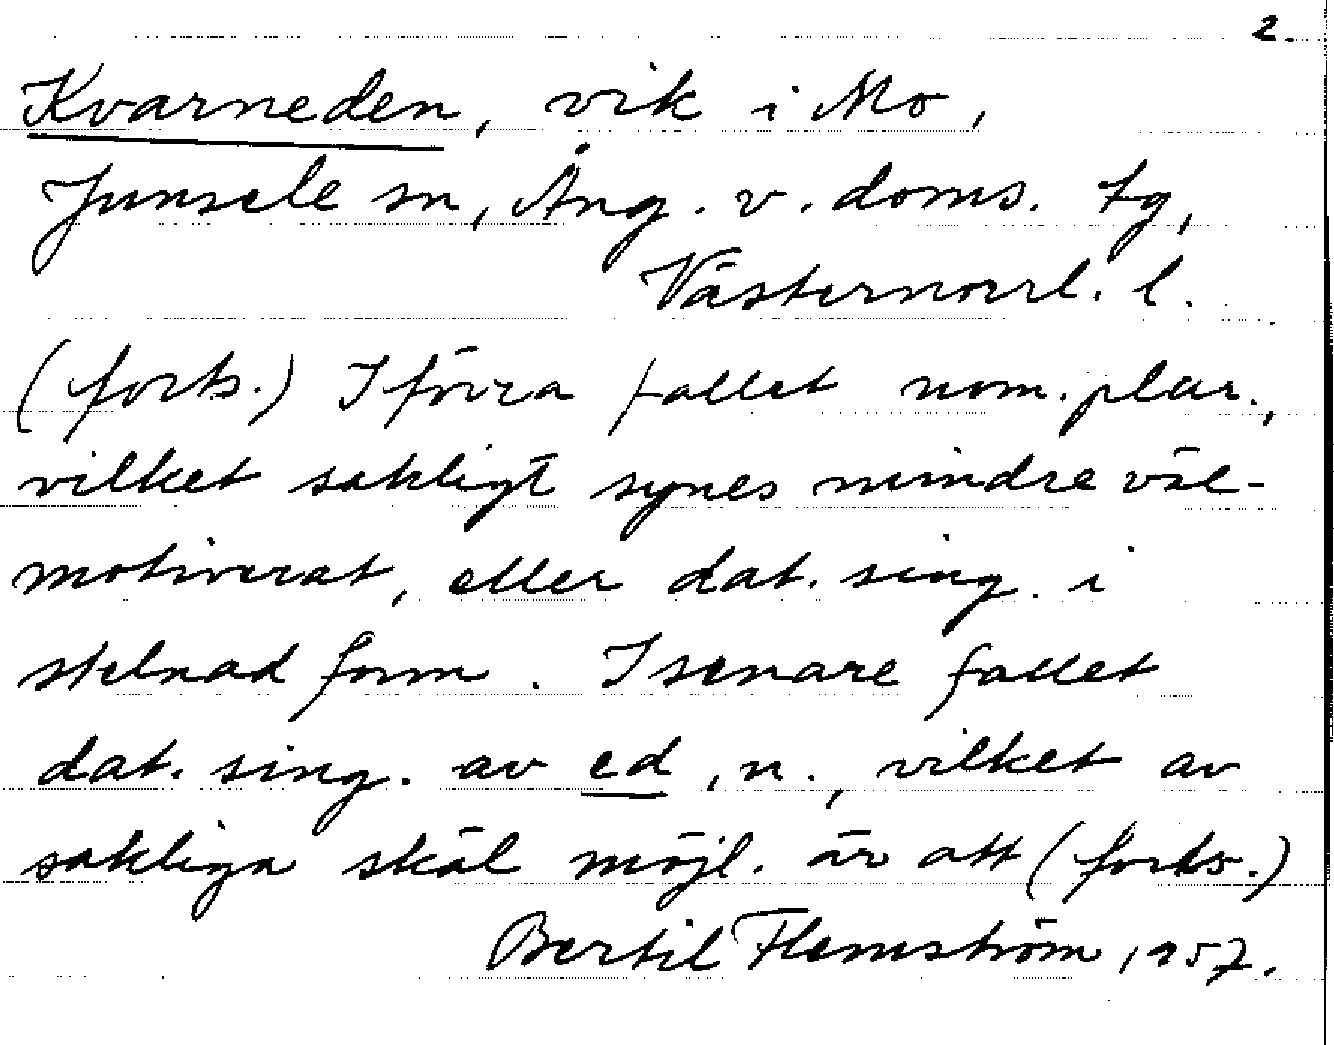 2.
Kvarneden, vik i Mo,
Junsele sn, Ång. v. doms. tg,
Västernorrl. l.
(forts.) I förra fallet nom. plur.,
vilket sakligt synes mindre väl-
motiverat, eller dat. sing. i
stelnad form. I senare fallet
dat. sing. av ed, n., vilket av
sakliga skäl möjl. är att (forts.)
Bertil Flemström, 1957.